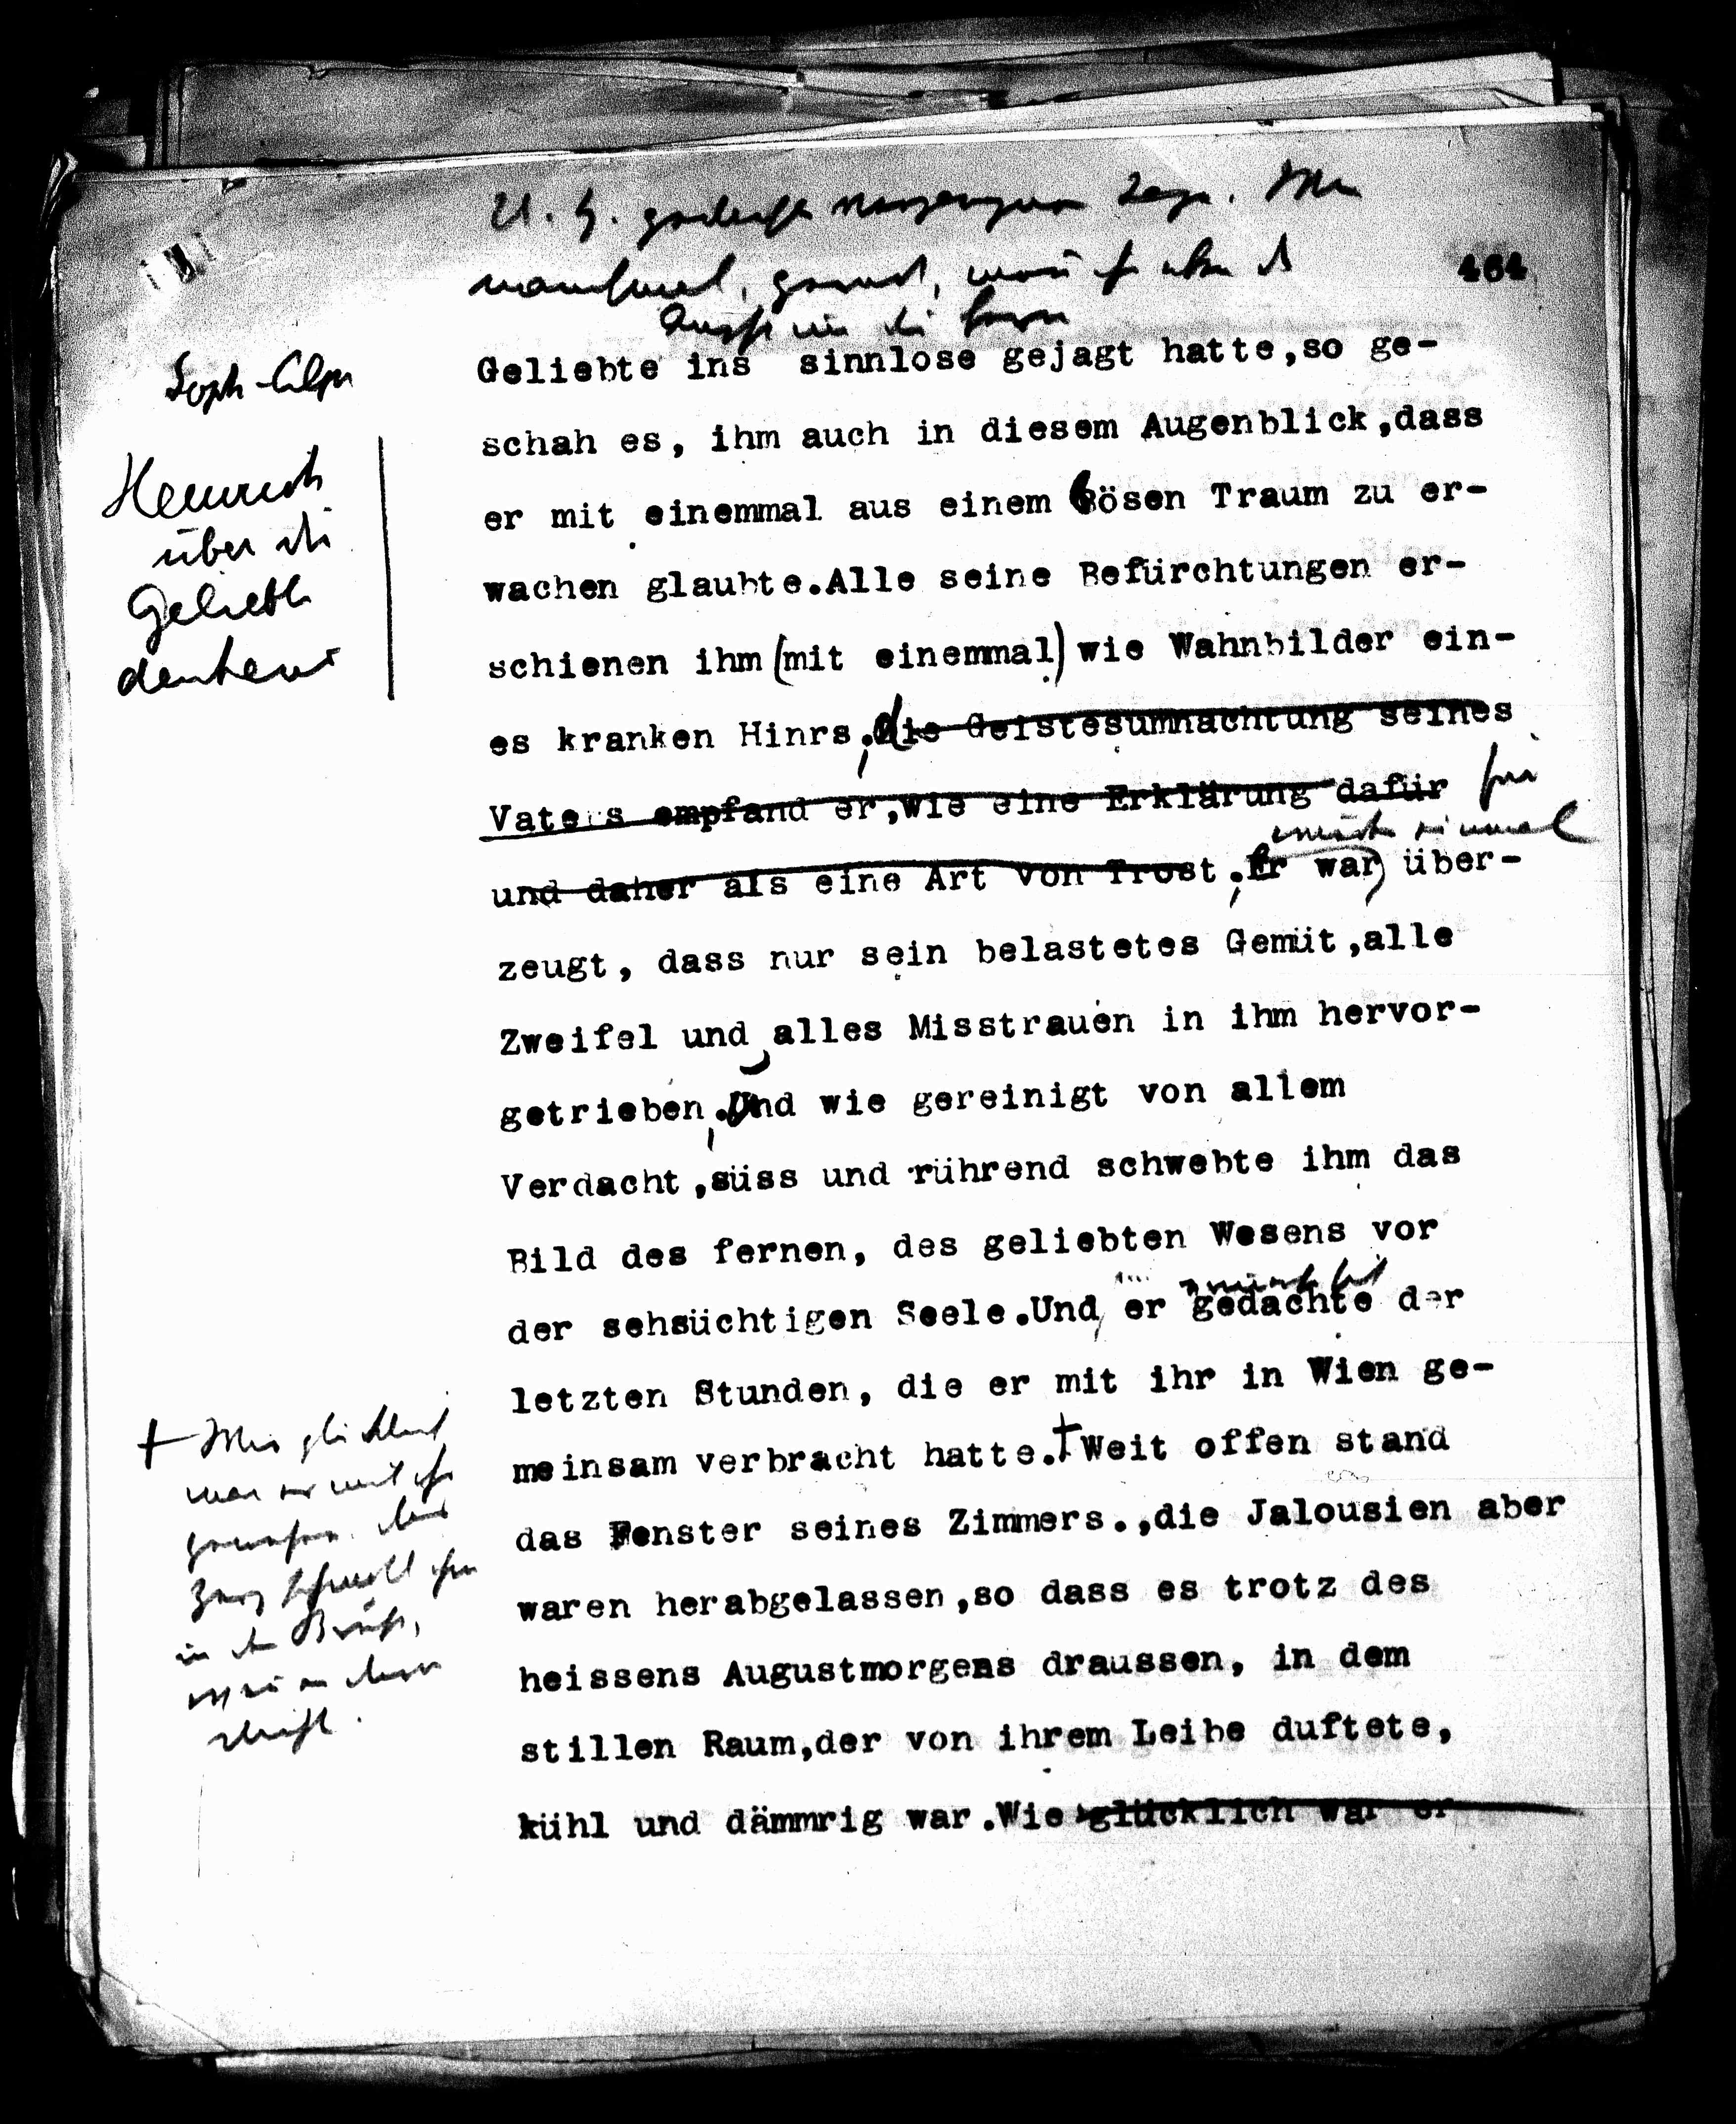 464
Geliebte ins sinnlose gejagt hatte,so ge-
schah es, ihm auch in diesem Augenblick,dass
er mit einemmal aus einem bösen Traum zu er-
wachen glaubte.Alle seine Befürchtungen er-
schienen ihm (mit einemmal) wie Wahnbilder ein-
es kranken Hinrs, die Geistesumnachtung seines
Vaters empfand er,wie eine Erklärung dafür
und daher als eine Art von Trost.Er war) über-
zeugt, dass nur sein belastetes Gemüt,alle
Zweifel und alles Misstrauen in ihm hervor-
getrieben,Und wie gereinigt von allem
Verdacht,süss und rührend schwebte ihm das
Bild des fernen, des geliebten Wesens vor
der sehsüchtigen Seele.Und er gedachte der
letzten Stunden, die er mit ihr in Wien ge-
meinsam verbracht hatte.† Weit offen stand
das Fenster seines Zimmers.,die Jalousien aber
waren herabgelassen,so dass es trotz des
heissens Augustmorgens draussen, in dem
stillen Raum,der von ihrem Leibe duftete,
kühl und dämmrig war.Wie glücklich war er
Heinrich
über die
Geliebte
denkend
† Wie glücklich
war er mit ihr
gewesen. Das
Herz schwoll ihm
in der Brust,